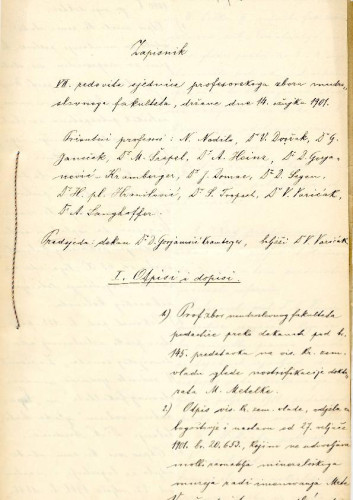 Zapisnik
VII. redovite sjednice profesorskoga zbora mudro-
slovnoga fakulteta, držane dne 14. ožujka 1901.
Prisutni profesori: N. Nodilo, Dr V. Dvořák, Dr G.
Janeček, Dr M. Šrepel, Dr A. Heinz, Dr D. Gorja-
nović Kramberger, Dr J. Domac, Dr D. Segen,
Dr H. pl. Hranilović, Dr I. Bojničić, Dr V. Varićak,
Dr A. Langhoffer.
Predsjeda: dekan Dr D. Gorjanović Kramberger, bilježi Dr V. Varićak
I. Otpisi i dopisi.
1) Prof. zbor mudroslovnog fakulteta
podastire preko dekanata pod br.
145. predstavku na vis. kr. zem.
vladu glede nostrifikacije dokto-
rata M. Metelka.
2) Otpis vis. kr. zem. vlade, odjela za
bogoštovje i nastavu od 27. veljače
1901. br. 20.652, kojim ne udovoljava
molbi ravnatelja mineraloškoga
muzeja radi imenovanja